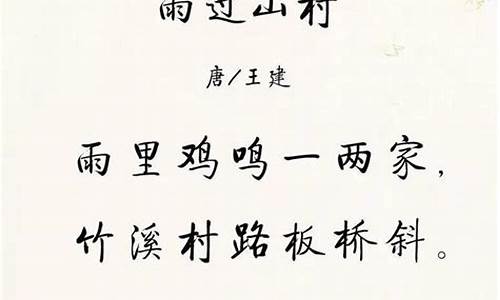 雨过山村
唐/王建
雨里鸡鸣一两家，
竹溪村路板桥斜。